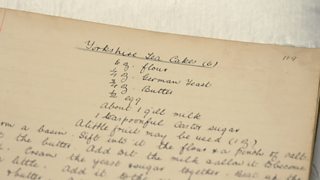 Yorkshire Tea Cakes (6) 119
6 oz. flour
1/4 oz. German Yeast
3/4 oz. Butter
1/2 egg
About 1 gill milk
1 teaspoonful castor sugar
a basin. A little fruit may be used (1 oz)
the butter. Sift into it the flour & a pinch of salt.
Add out the milk & allow it to become
Cream the yeast & sugar together. Beat up the
little. Add it
& butter. Add it